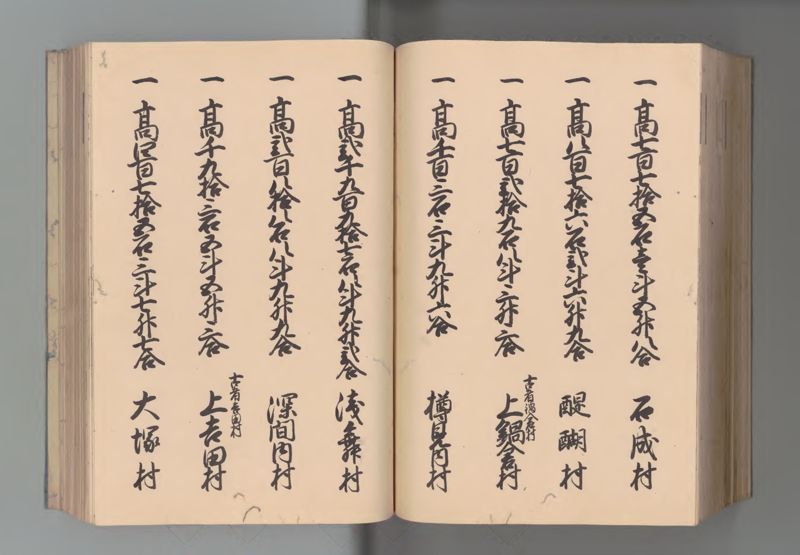 一 高七百七拾五石壱斗五升八合 石成村
一 高八百七拾六石弐斗六升九合 醍醐村
一 高七百弐拾九石八斗三升三合 上鍋倉村
古者鍋倉村
一 高千百三石三斗九升六合 樽見内村
一 高弐千九百九拾壱石八斗九升弐合 浅舞村
一 高弐百八拾八石八斗九升九合 深間内村
一 高千九拾三石五斗五升三合 上吉田村
古者吉田村
一 高四百七拾五石三斗七升七合 大塚村